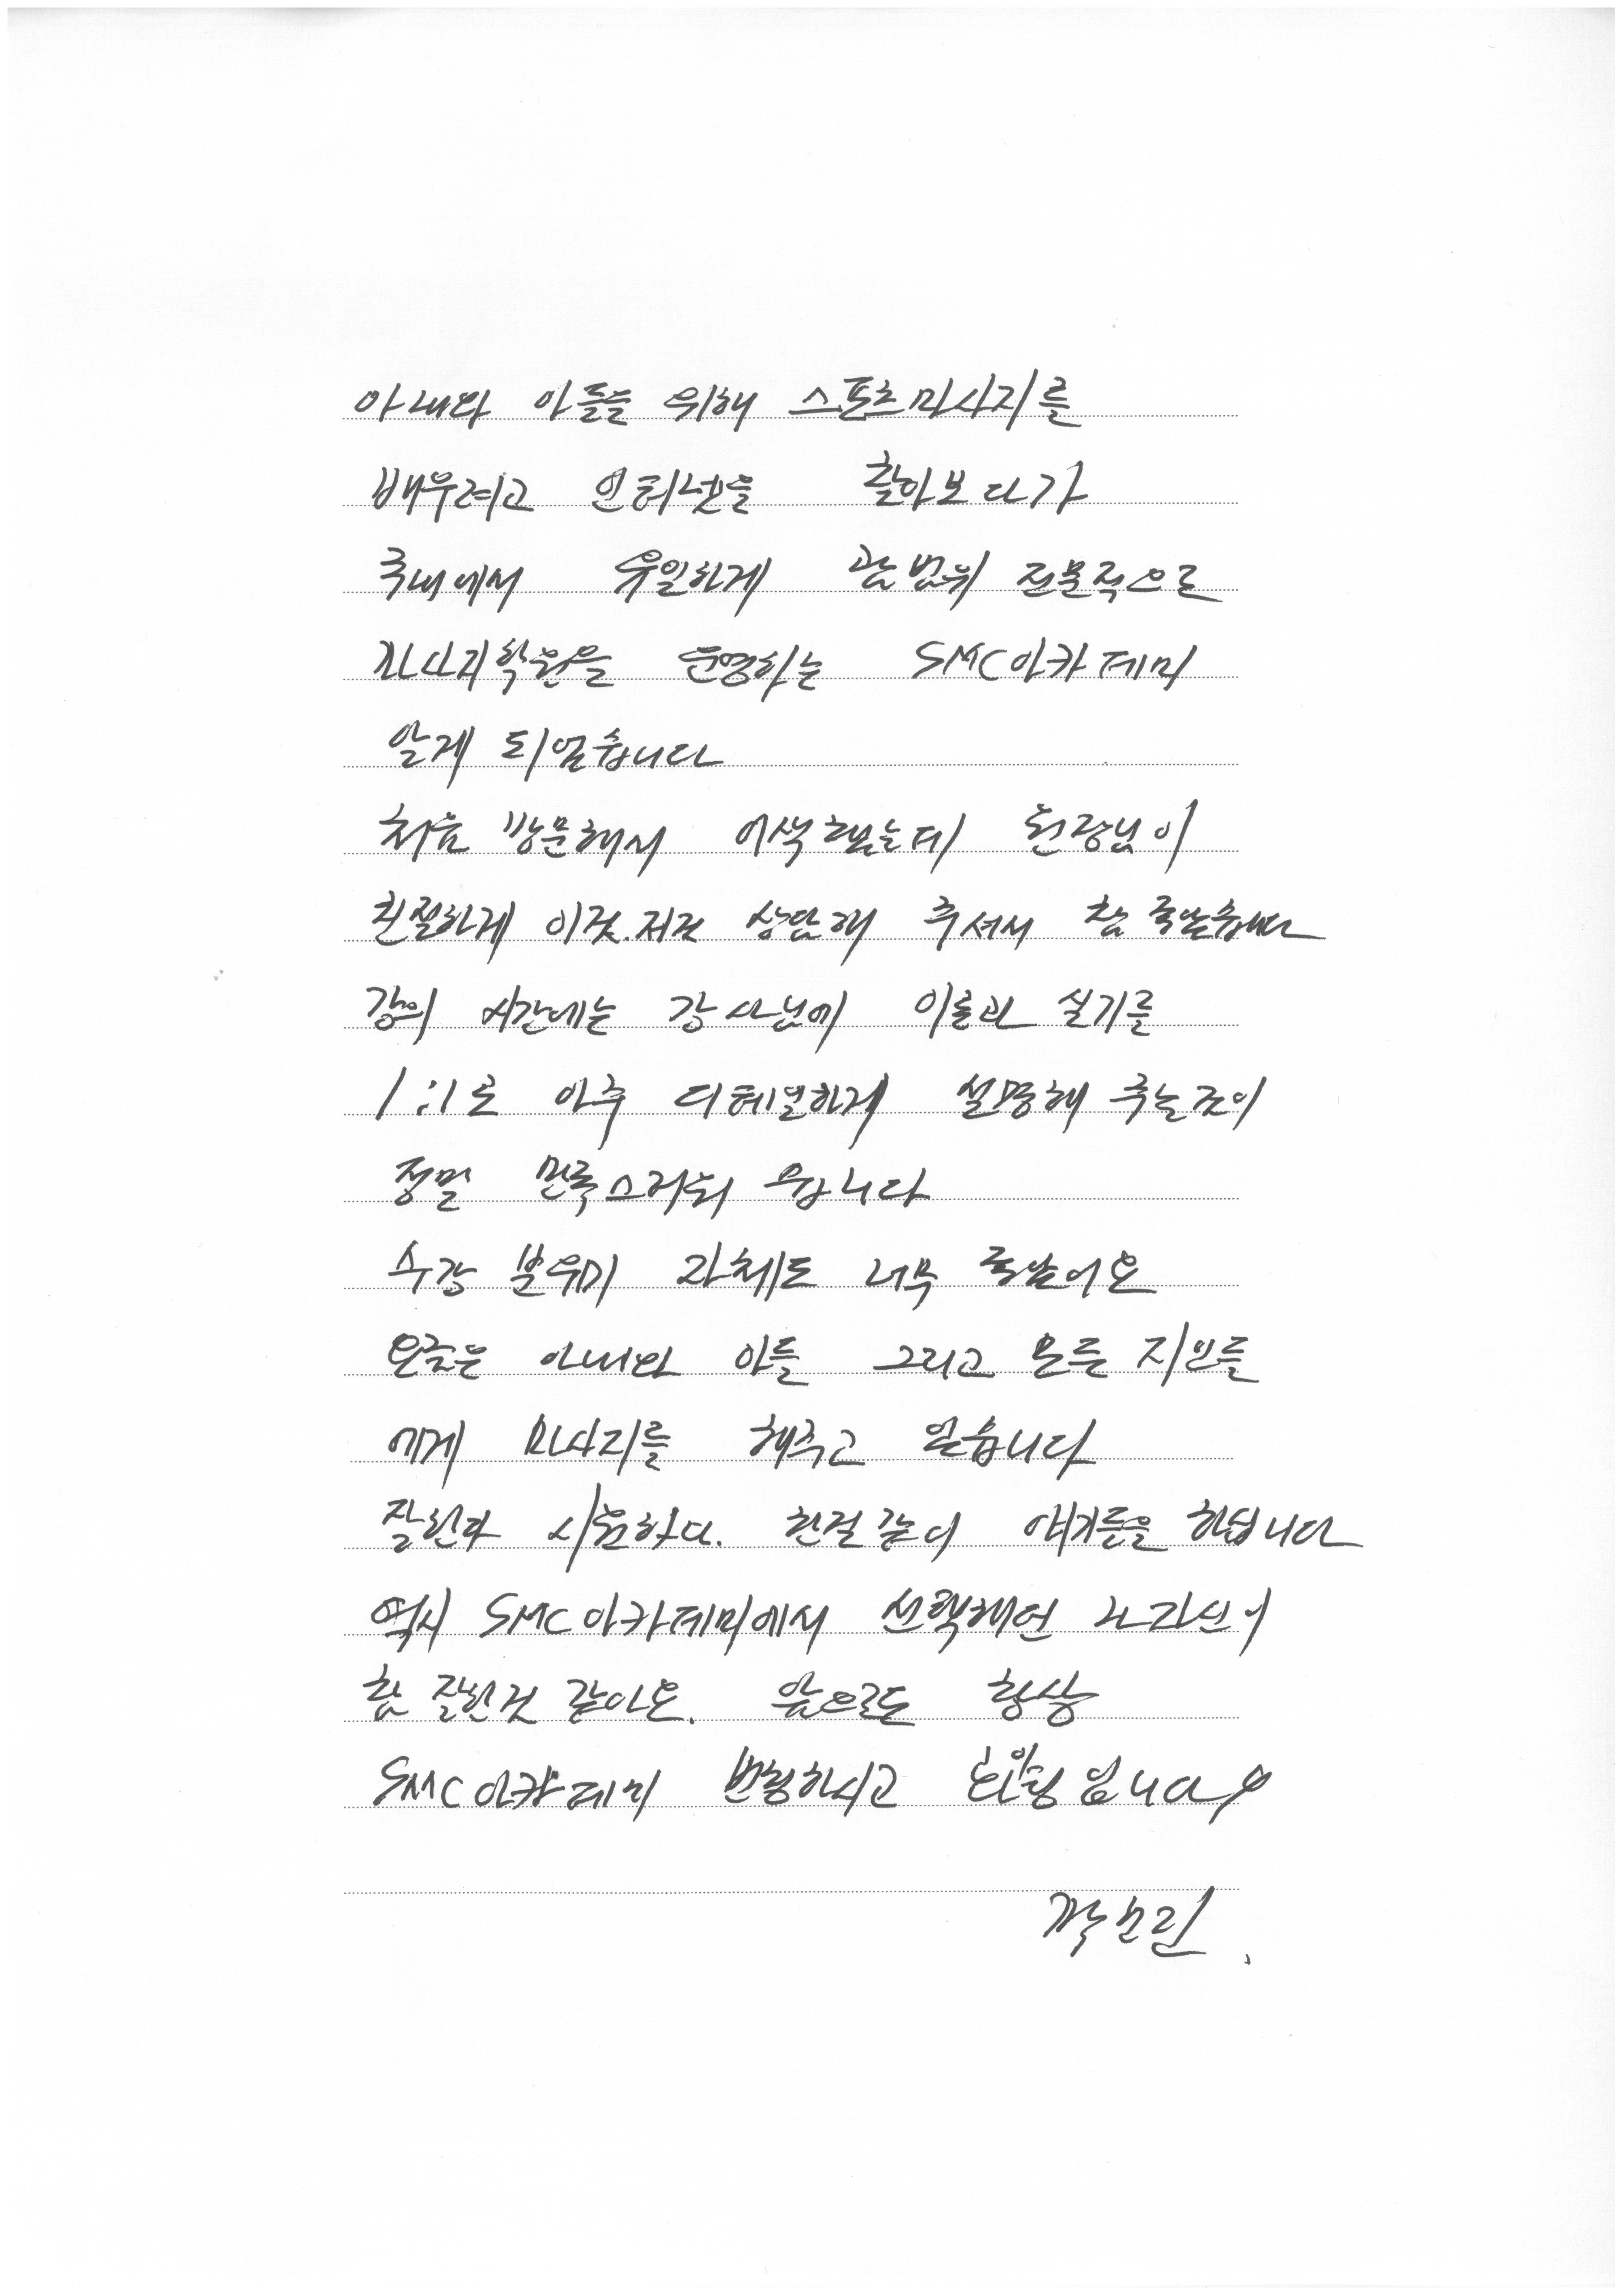 아내와 아들을 위해 스포츠마사지를
배우려고 인터넷을 찾아보다가
국내에서 유일하게 광범위 전문적으로
마사지학원을 운영하는 SMC아카데미
알게 되었습니다
처음 방문해서 어색했는데 원장님이
친절하게 이것.저것 상담해 주셔서 참 좋았습니다
강의 시간에는 강사님에 이론과 실기를
1:1로 아주 디테일하게 설명해 주는것이
정말 만족스러워 웁니다
수강 분위기 자체도 너무 좋았어요
요즘은 아내와 아들 그리고 모든 지인들
에게 마사지를 해주고 있습니다
잘한다 시원하다. 한결같이 얘기들을 하십니다
역시 SMC아카데미에서 선택해던 내 자신이
참 잘한것 같아요. 앞으로도 항상
SMC아카데미 번창하시고 화이팅 입니다